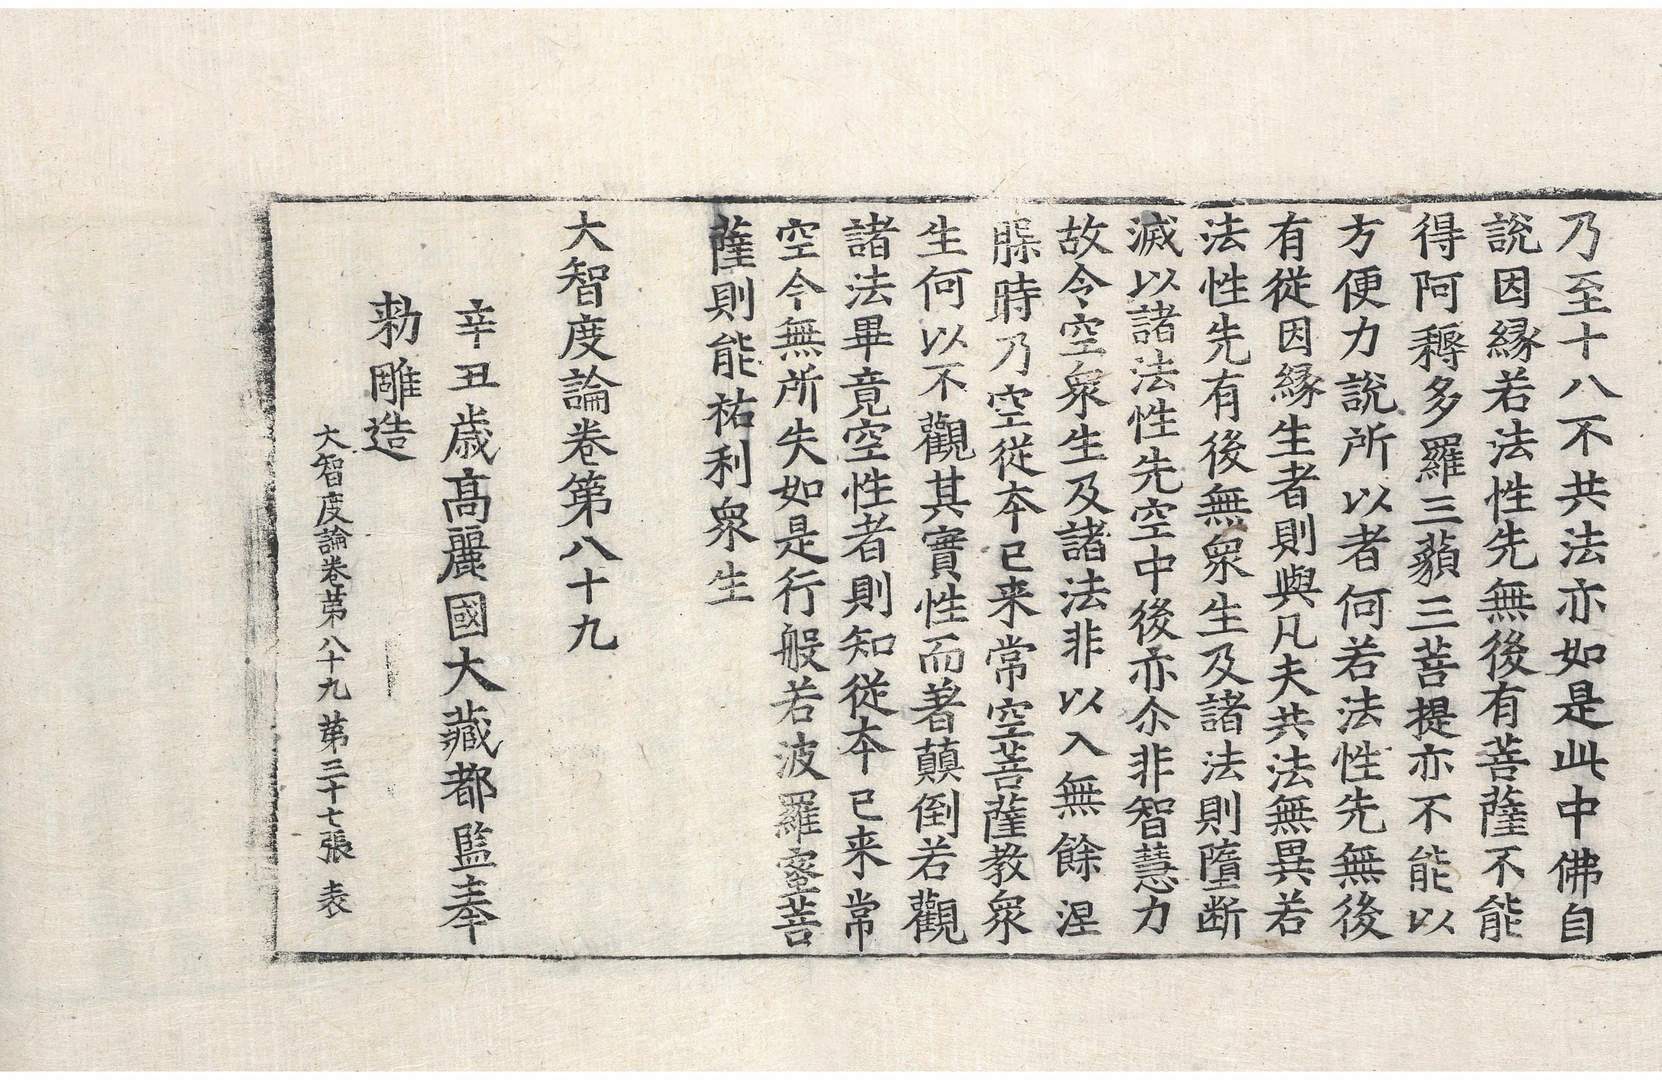 乃至十八不共法亦如是此中佛自
說因緣若法性先無後有菩薩不能
得阿耨多羅三藐三菩提亦不能以
方便力說所以者何若法性先無後
有從因緣生者則與凡夫共法無異若
法性先有後無衆生及諸法則墮断
滅以諸法性先空中後亦尒非智慧力
故令空衆生及諸法非以入無餘涅
槃時乃空從夲已来常空菩薩教衆
生何以不觀其實性而著顛倒若觀
諸法畢竟空性者則知從夲已来常
空今無所失如是行般若波羅蜜菩
薩則能祐利衆生
大智度論卷第八十九
辛丑歳高麗國大藏都監奉
勑雕造
大智度論卷第八十九 第三十七張 表